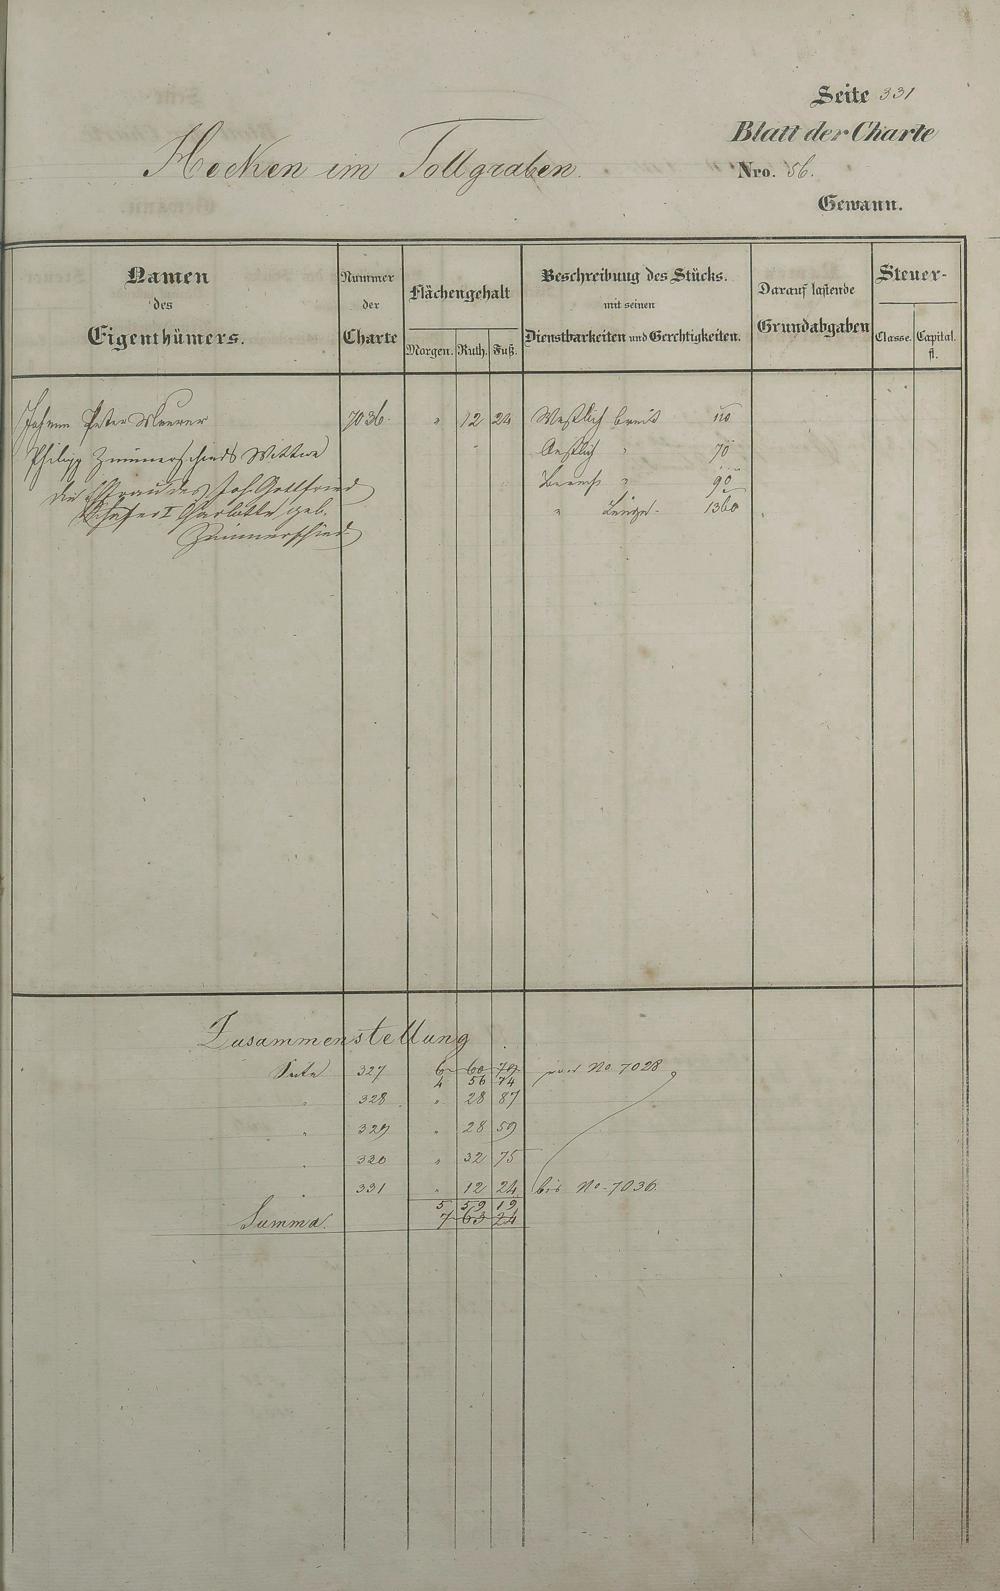 Seite 331
Blatt der Charte
Hecken im Tollgraben.
Nro. 56.
Gewann.
Namen des Eigenthümers.
Nummer der Charte
Flächengehalt
Morgen. Ruth. Fuß.
Beschreibung des Stücks. mit seinen Dienstbarkeiten und Gerechtigkeiten.
Darauf lastende Grundabgaben
Steuer-
Classe. Capital. fl.
Johann Peter Maurer 7036. " 12 24 Westlich breit 110
Philipp Zimmerschieds Wittwe Oestlich " 70
die Ehefrau des Joh. Gottfried " 90
Schäfer I Charlotte, geb. " Länge. 1360
Zimmerschied
Zusammenstellung
Seite 327 6 60 79 von No. 7028
4 56 74
" 328 " 28 87
" 329 " 28 59
" 330 " 32 75
331 " 12 24 bis No. 7036.
5 59 19
Summa. 7 63 24